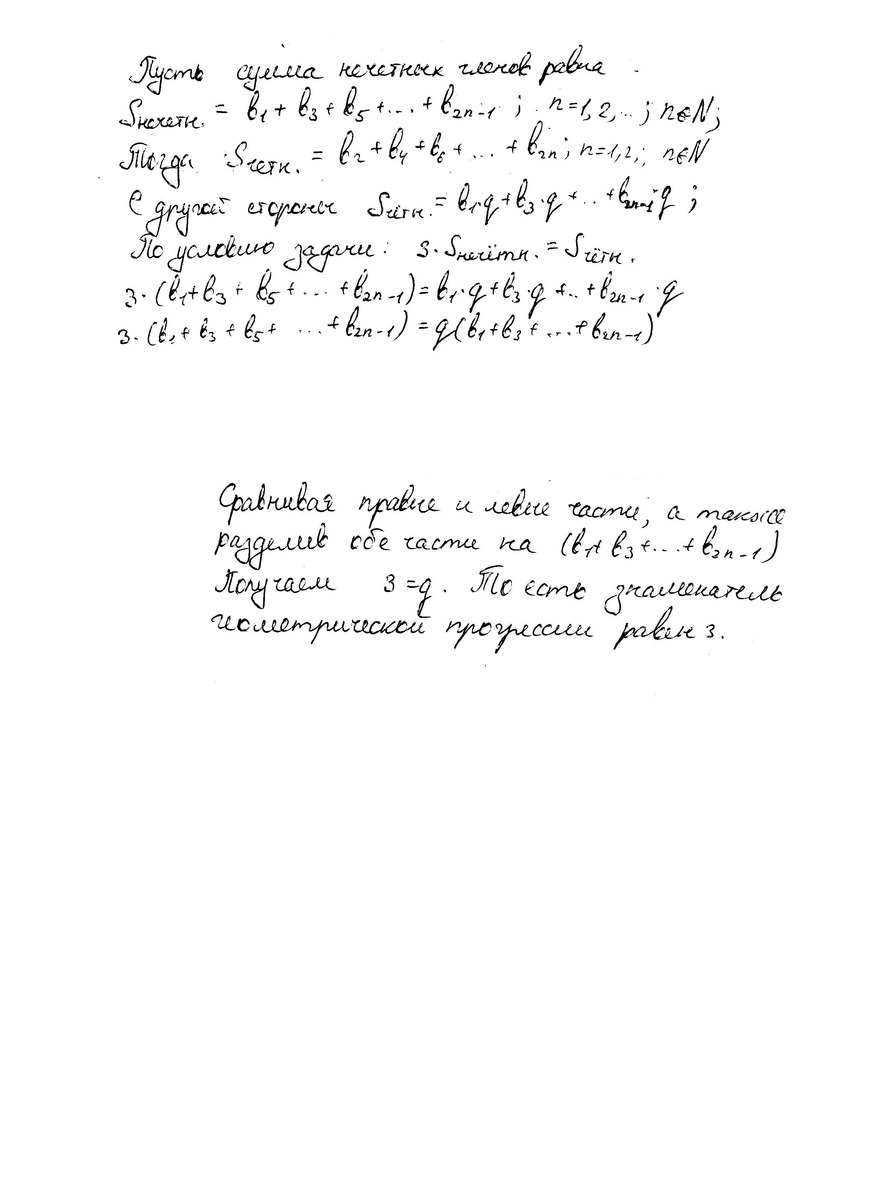 Пусть сумма нечетных членов равна
Sнечетн. = b₁ + b₃ + b₅ + ... + b₂ₙ₋₁ ; n=1,2,...; n∈N;
Тогда Sчетн. = b₂ + b₄ + b₆ + ... + b₂ₙ; n=1,2,; n∈N
С другой стороны Sчётн. = b₁·q + b₃·q + ... + b₂ₙ₋₁·q ;
По условию задачи: 3·Sнечётн. = Sчётн.
3·(b₁+b₃ + b₅ + ... + b₂ₙ₋₁) = b₁·q+b₃·q + .. + b₂ₙ₋₁·q
3·(b₁ + b₃ + b₅ + ... + b₂ₙ₋₁) = q(b₁+b₃+ ... + b₂ₙ₋₁)
Сравнивая правые и левые части, а также
разделив обе части на (b₁+ b₃ + ... + b₂ₙ₋₁)
Получаем 3 = q. То есть знаменатель
геометрической прогрессии равен 3.